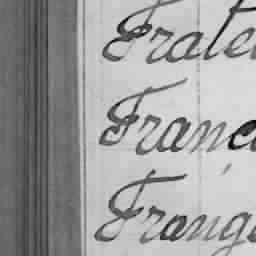 Frate
Franc
Frang